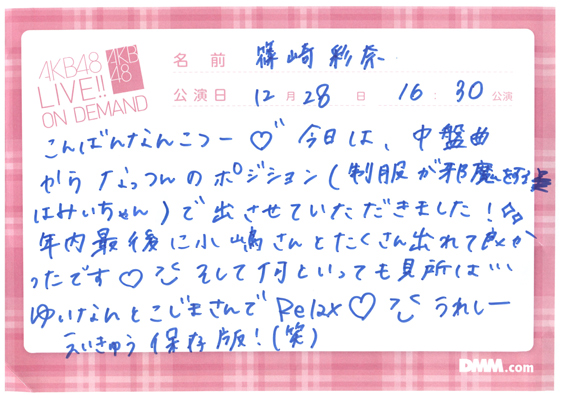 AKB48
LIVE!!
ON DEMAND
AKB
48
名前 篠崎彩奈
公演日 12月28日 16:30公演
こんばんなんこつー♡ 今日は、中盤曲
からなっつんのポジション(制服が邪魔をする
はみいちゃん)で出させていただきました!
年内最後に小嶋さんとたくさん出れて良か
ったです♡ そして何といっても見所は…
ゆいなんとこじまさんでRelax♡ うれしー
えいきゅう保存版!(笑)
DMM.com